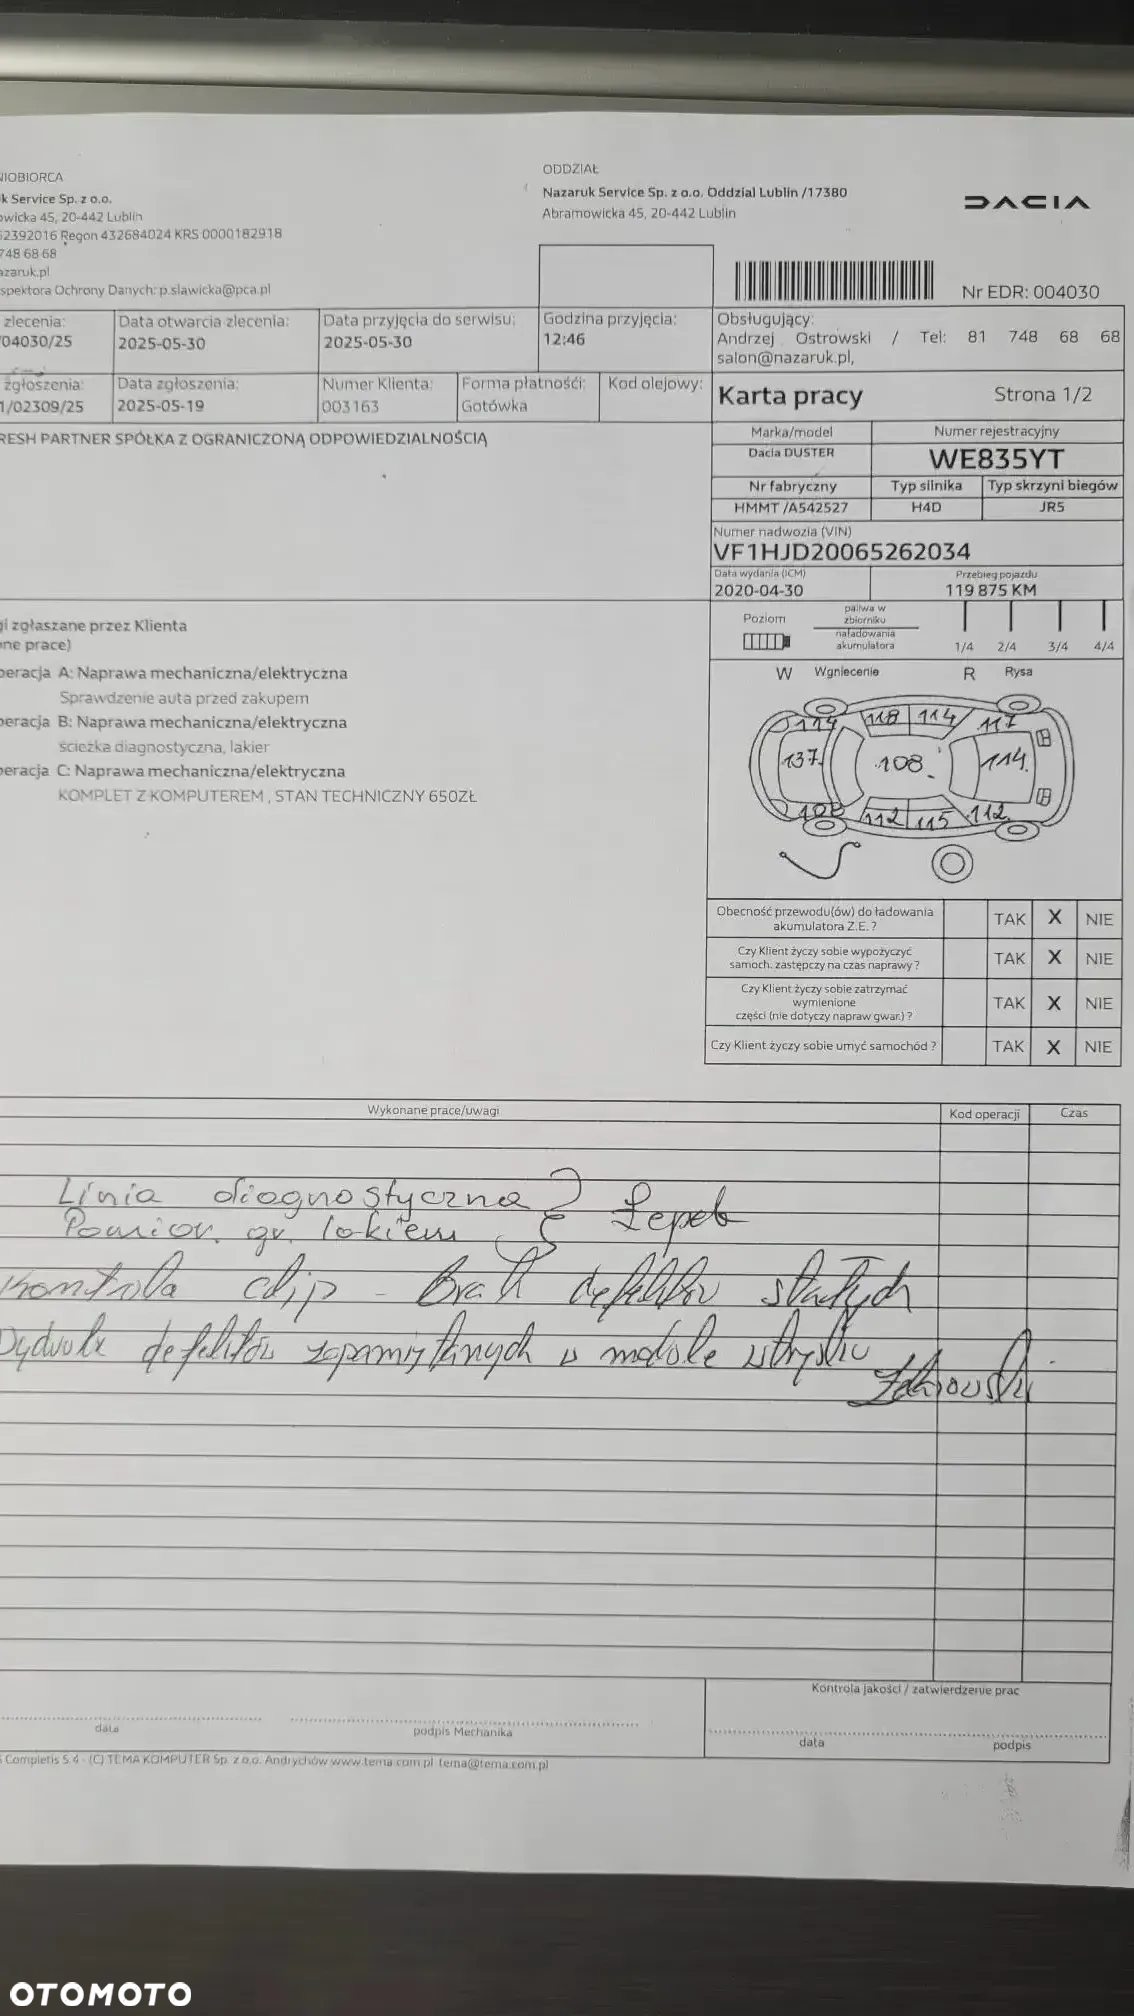 NIOBIORCA
k Service Sp. z o.o.
owicka 45, 20-442 Lublin
52392016 Regon 432684024 KRS 0000182918
748 68 68
azaruk.pl
spektora Ochrony Danych: p.slawicka@pca.pl
ODDZIAŁ
Nazaruk Service Sp. z o.o. Oddzial Lublin /17380
Abramowicka 45, 20-442 Lublin
DACIA
Nr EDR: 004030
zlecenia:
04030/25
Data otwarcia zlecenia:
2025-05-30
Data przyjęcia do serwisu:
2025-05-30
Godzina przyjęcia:
12:46
Obsługujący:
Andrzej Ostrowski / Tel: 81 748 68 68
salon@nazaruk.pl,
zgłoszenia:
1/02309/25
Data zgłoszenia:
2025-05-19
Numer Klienta:
003163
Forma płatności:
Gotówka
Kod olejowy:
Karta pracy
Strona 1/2
RESH PARTNER SPÓŁKA Z OGRANICZONĄ ODPOWIEDZIALNOŚCIĄ
Marka/model
Dacia DUSTER
Numer rejestracyjny
WE835YT
Nr fabryczny
HMMT /A542527
Typ silnika
H4D
Typ skrzyni biegów
JR5
Numer nadwozia (VIN)
VF1HJD20065262034
Data wydania (ICM)
2020-04-30
Przebieg pojazdu
119 875 KM
gi zgłaszane przez Klienta
one prace)
peracja A: Naprawa mechaniczna/elektryczna
Sprawdzenie auta przed zakupem
peracja B: Naprawa mechaniczna/elektryczna
ścieżka diagnostyczna, lakier
peracja C: Naprawa mechaniczna/elektryczna
KOMPLET Z KOMPUTEREM , STAN TECHNICZNY 650ZŁ
Poziom
paliwa w
zbiorniku
naładowania
akumulatora
1/4 2/4 3/4 4/4
W Wgniecenie R Rysa
114 118 114 117
137 108 114
108 112 115 112
Obecność przewodu(ów) do ładowania
akumulatora Z.E. ?
TAK X NIE
Czy Klient życzy sobie wypożyczyć
samoch. zastępczy na czas naprawy ?
TAK X NIE
Czy Klient życzy sobie zatrzymać
wymienione
części (nie dotyczy napraw gwar.) ?
TAK X NIE
Czy Klient życzy sobie umyć samochód ?
TAK X NIE
Wykonane prace/uwagi
Kod operacji
Czas
Linia diagnostyczna
Pomiar. gr. lakieru
Kontrola clip - Brak defektów stałych
defektów zapamiętanych w module wtrysku
data
podpis Mechanika
Kontrola jakości / zatwierdzenie prac
data
podpis
Completis 5.4 - (C) TEMA KOMPUTER Sp. z o.o. Andrychów www.tema.com.pl tema@tema.com.pl
OTOMOTO